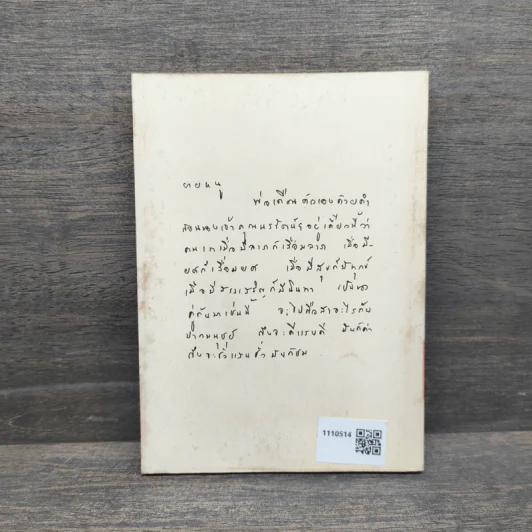 ยายหนู
พ่อเตือนตัวเองด้วยคำ
สอนของเจ้าคุณนรรัตน์อยู่เดี๋ยวนี้ว่า
คนเราเมื่อมีลาภก็เสื่อมลาภ เมื่อมี
ยศก็เสื่อมยศ เมื่อมีสุขก็มีทุกข์
เมื่อมีสรรเสริญก็มีนินทา เป็นของ
คู่กันมาเช่นนี้ จะไปถือสาอะไรกับ
ปากมนุษย์ ถึงจะดีแสนดี มันก็ด่า
ถึงจะชั่วแสนชั่วมันก็ชม
1110514